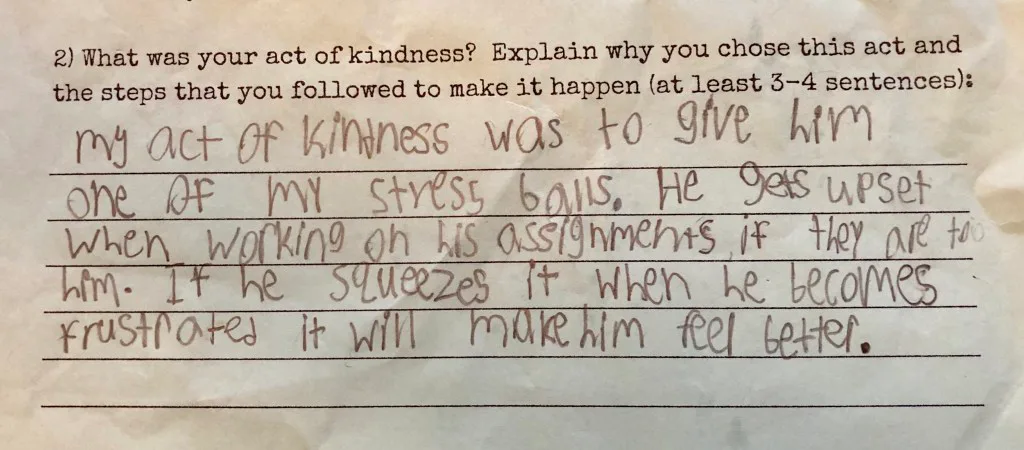 2) What was your act of kindness? Explain why you chose this act and
the steps that you followed to make it happen (at least 3-4 sentences):
my act of kindness was to give him
one of my stress balls. He gets upset
when working on his assignments if they are too
him. If he squeezes it when he becomes
frustrated it will make him feel better.